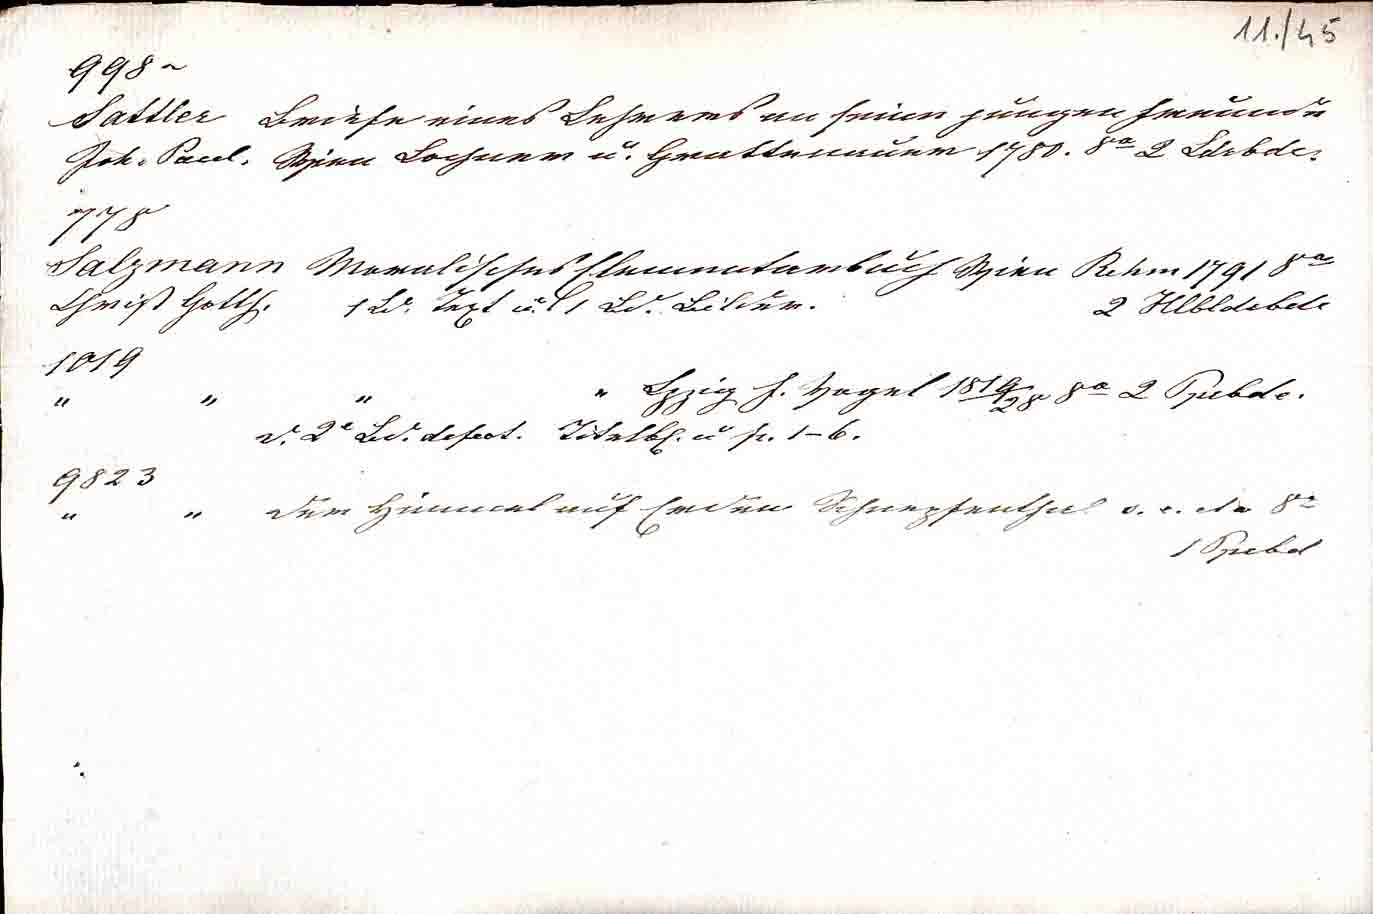 11./45
998
Sattler Briefe eines Lehrers an seine jungen Freunde
Joh. Paul. Wien Lochner u. Grattenauer 1780. 8º 2 Ldrbde.
778
Salzmann Moralisches Elementarbuch Wien Rehm 1791 8º
Christ. Gotth. 1 Bd. Text u. 1 Bd. Bilder. 2 Hlbldrbde
1019
" " " " Lpzig F. Vogel 1819/28 8º 2 Ppebde.
d. 2e Bd. defect. Titelbl. u p. 1-6.
9823
" " Der Himmel auf Erden Schnepfenthal 8º
1 Ppebd